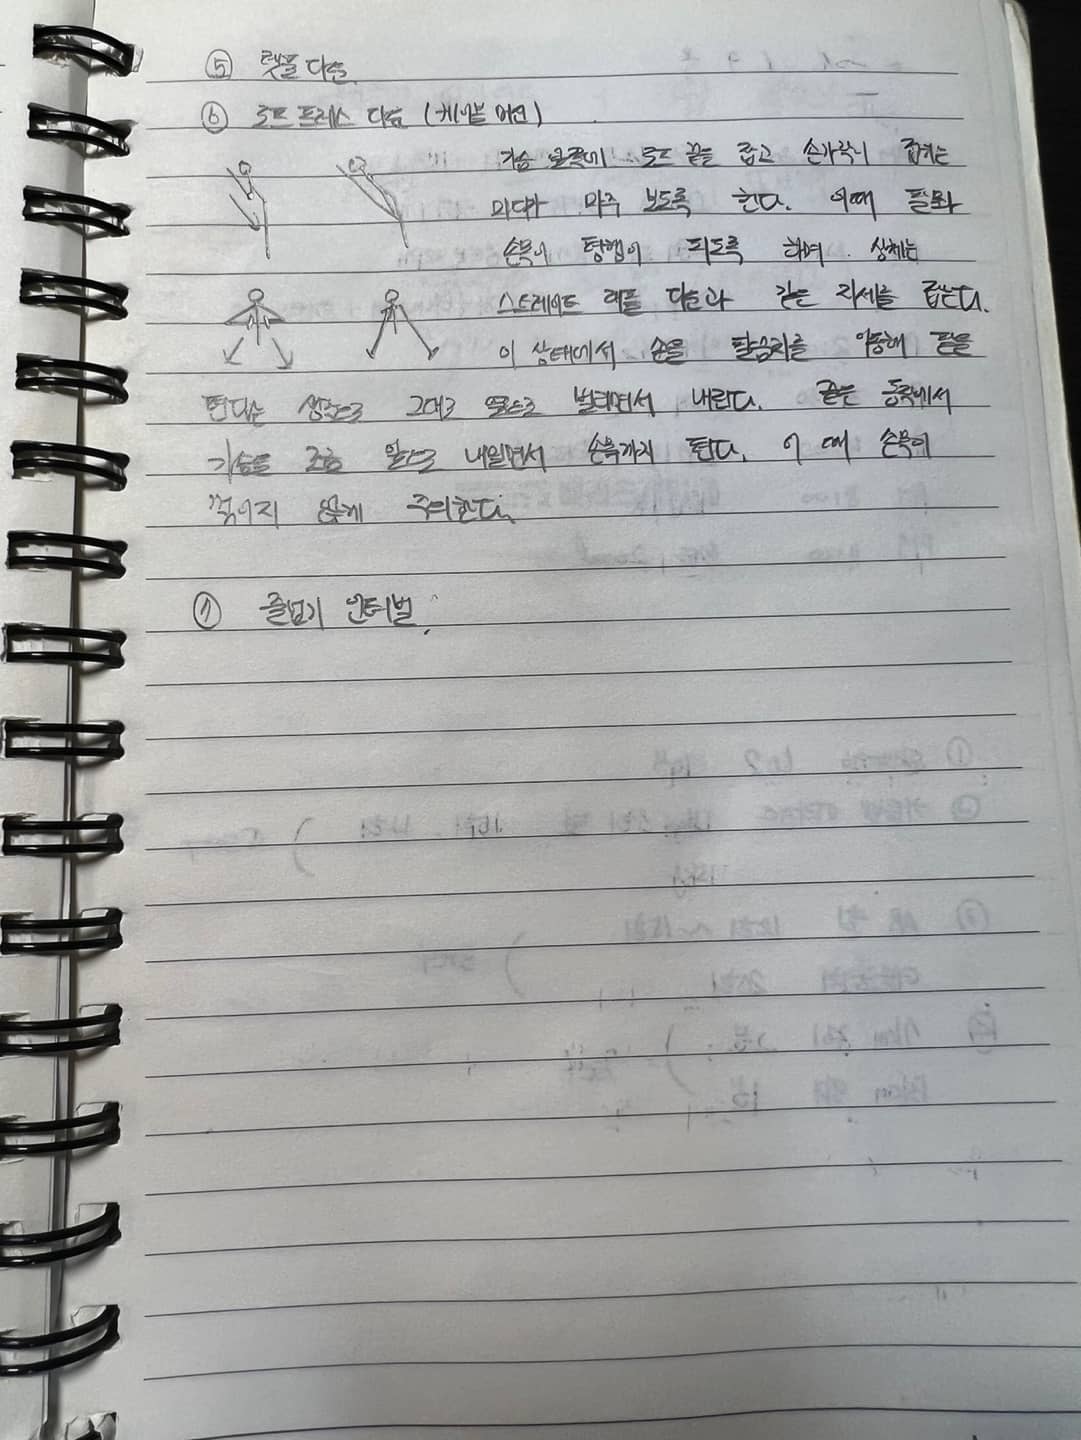 ⑤ 랫풀다운
⑥ 로프 프레스 다운 (케이블 머신)
가슴 앞쪽에 로프 끝을 잡고 손가락이 접히는
마디가 마주 보도록 한다. 이때 팔뚝과
손목이 평행이 되도록 하며 상체는
스트레이트 래풀 다운과 같은 자세를 잡는다.
이 상태에서 손을 팔꿈치를 이용해 팔을
편다는 생각으로 그대로 옆으로 벌리면서 내린다. 끝은 등쪽에서
가슴을 조금 앞으로 내밀면서 손목까지 편다. 이 때 손목이
꺾이지 않게 주의한다.
⑦ 줄넘기 인터벌